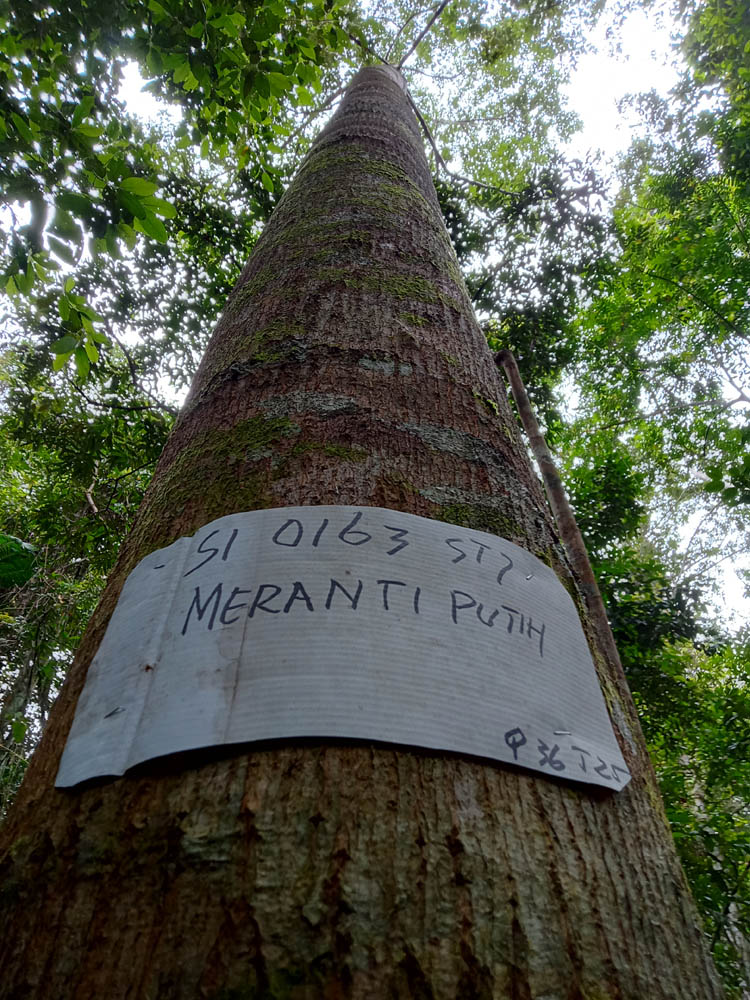 SI 0163 ST7
MERANTI PUTIH
φ 36 T25